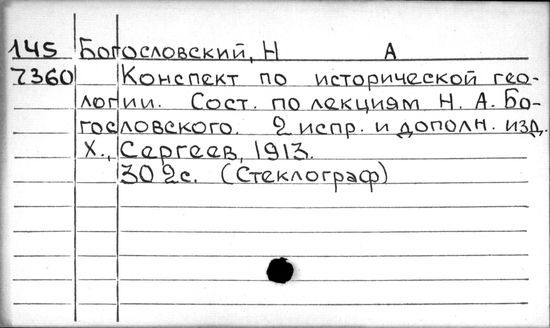 145 Богословский, Н А
7360 Конспект по исторической гео-
логии. Сост. по лекциям Н. А. Бо-
гословского. 2 испр. и дополн. изд.
Х., Сергеев, 1913.
302с. (Стеклограф)